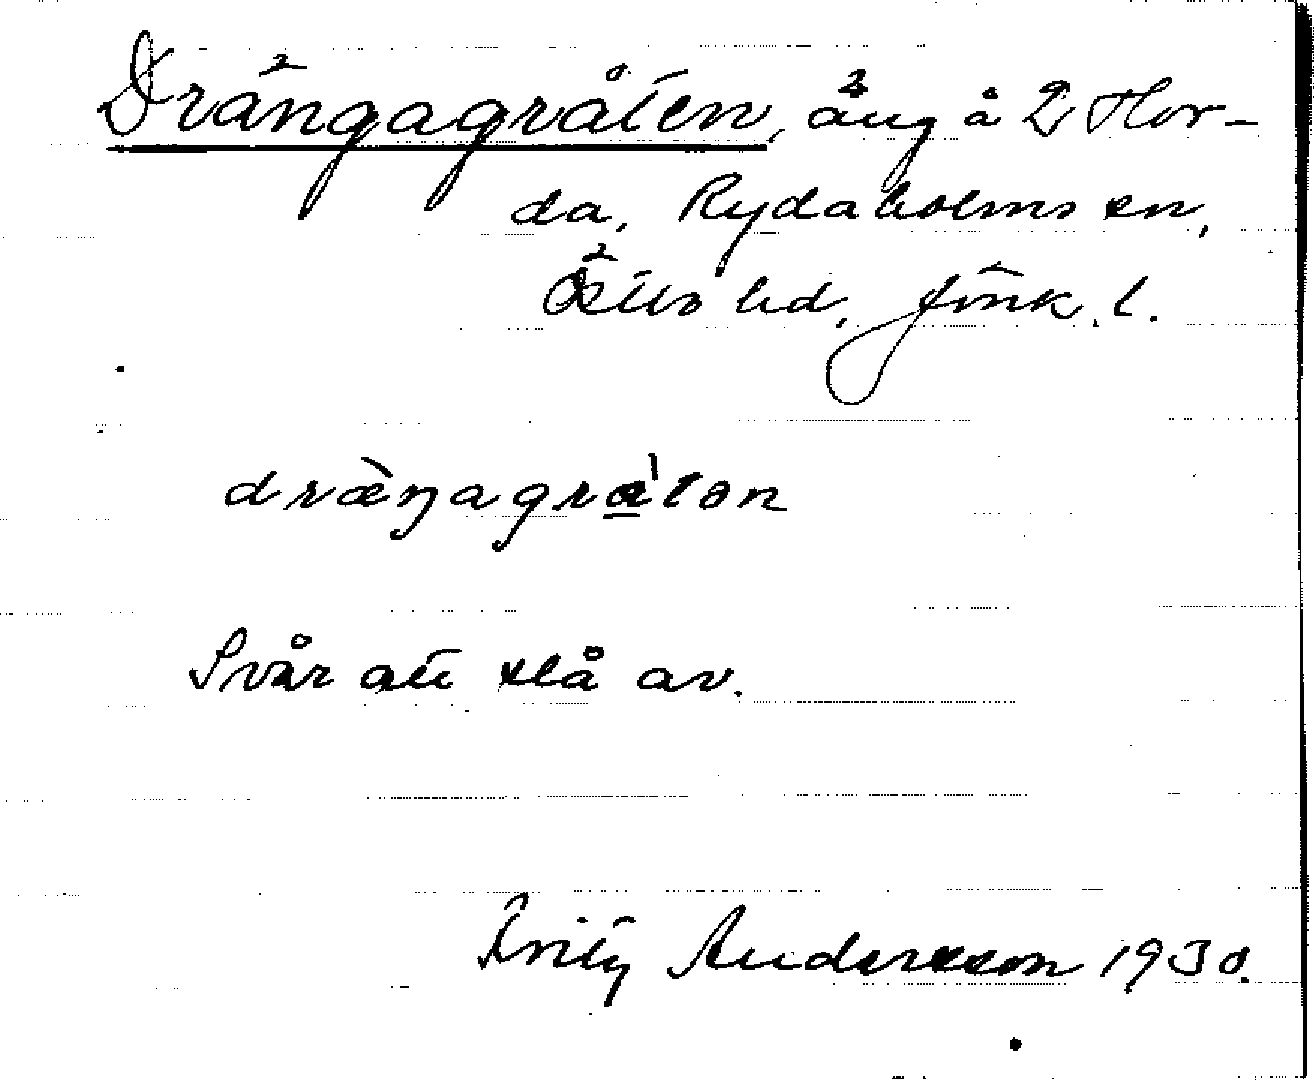 Drängagråten, äng å L Hor-
da, Rydaholms sn,
Östbo hd, Jönk. l.
dræ̀ŋagrå̀tən
Svår att slå av.
Fritz Andersson 1930.